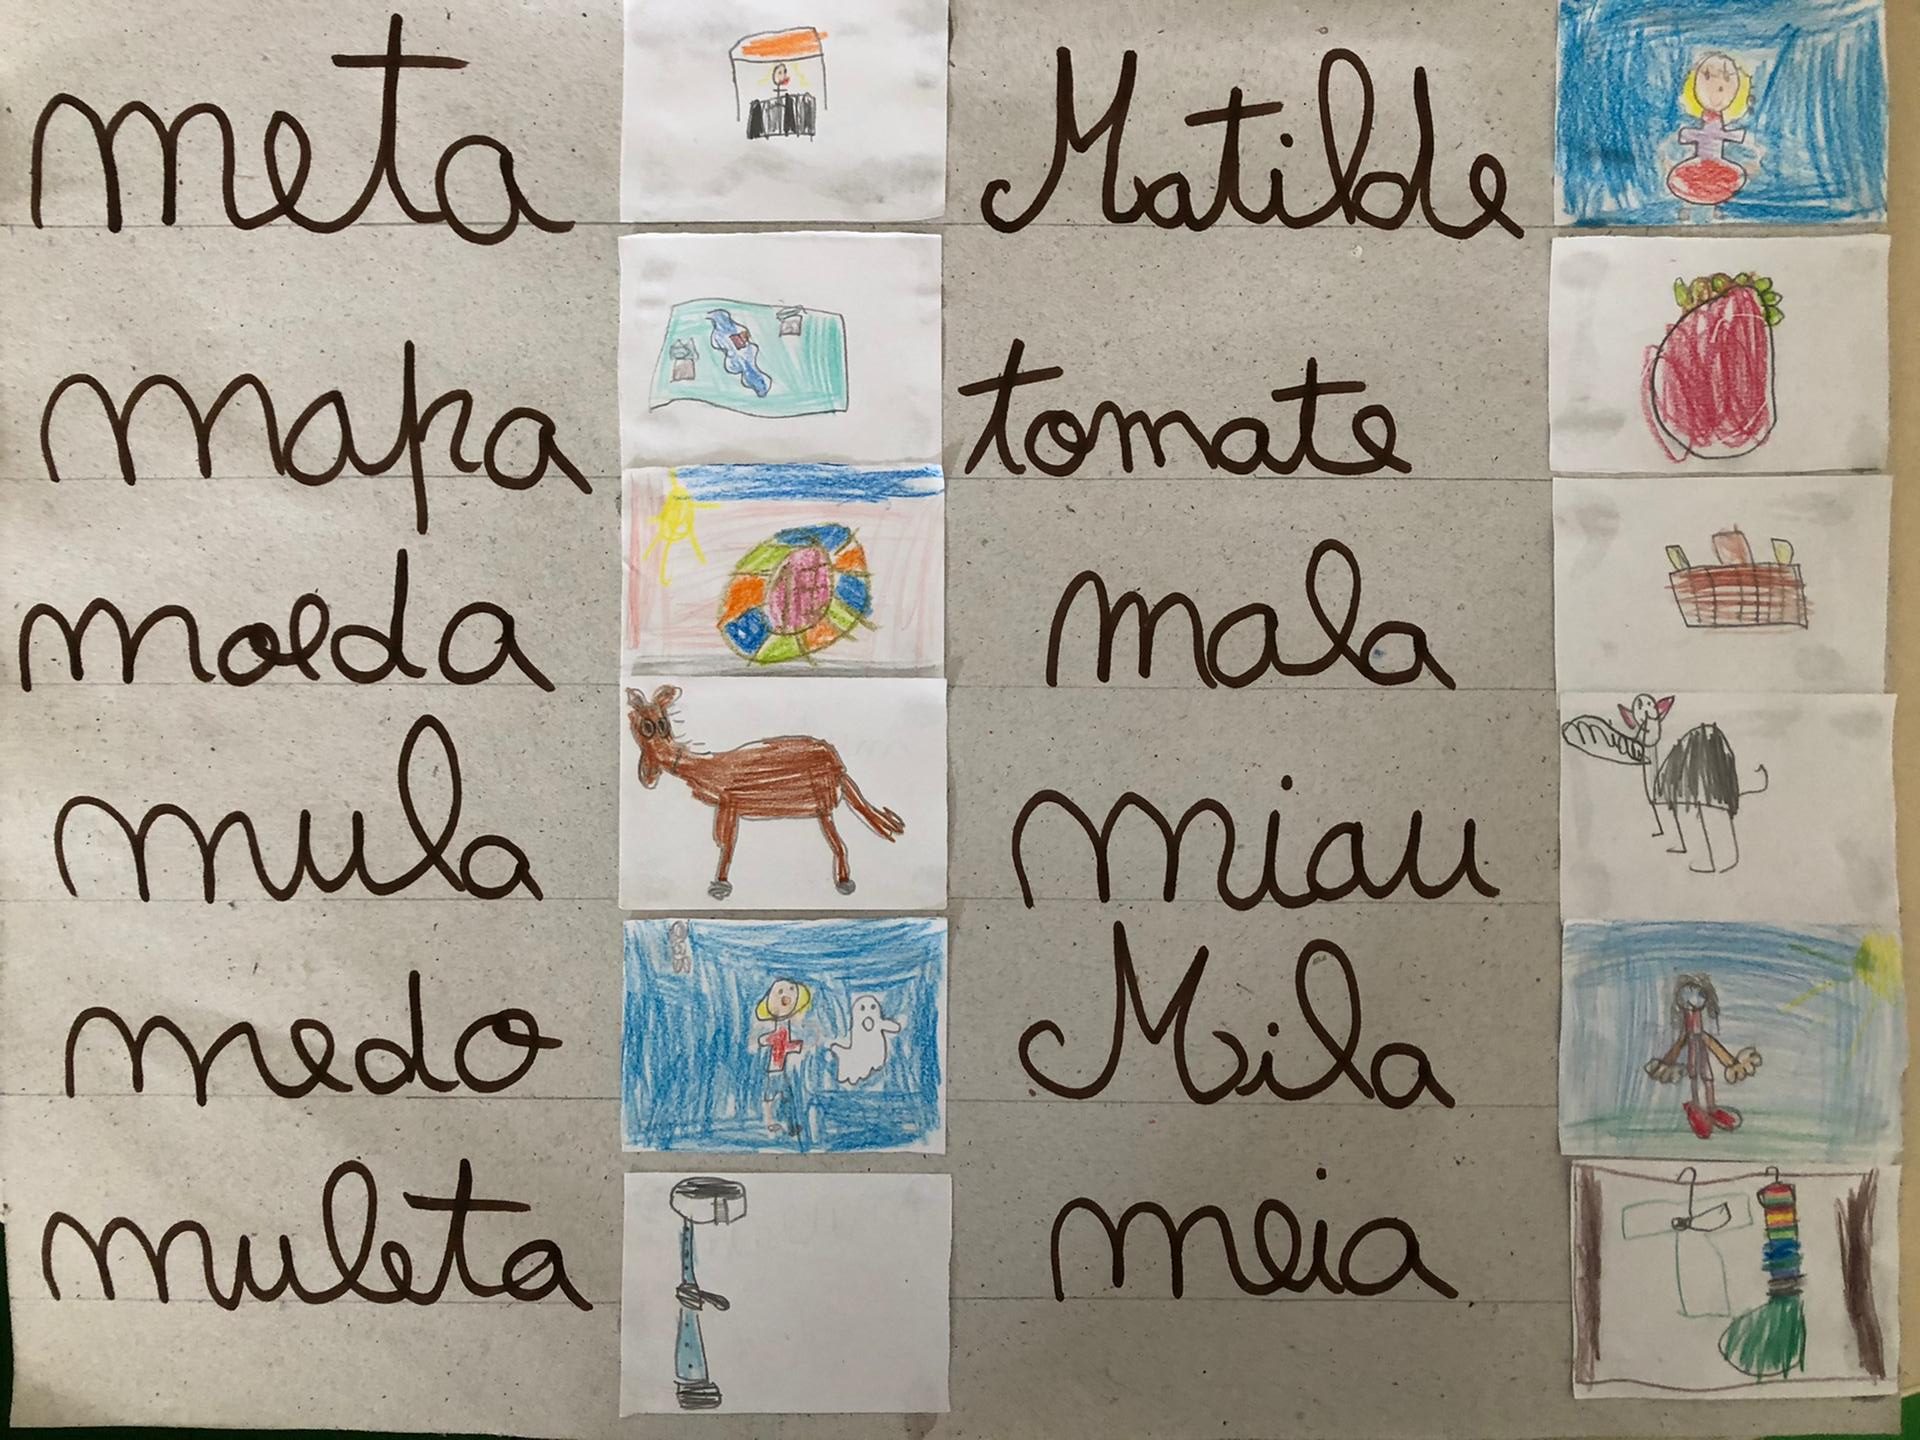 meta
mapa
moeda
mula
medo
muleta
Matilde
tomate
mala
miau
miau
Mila
meia